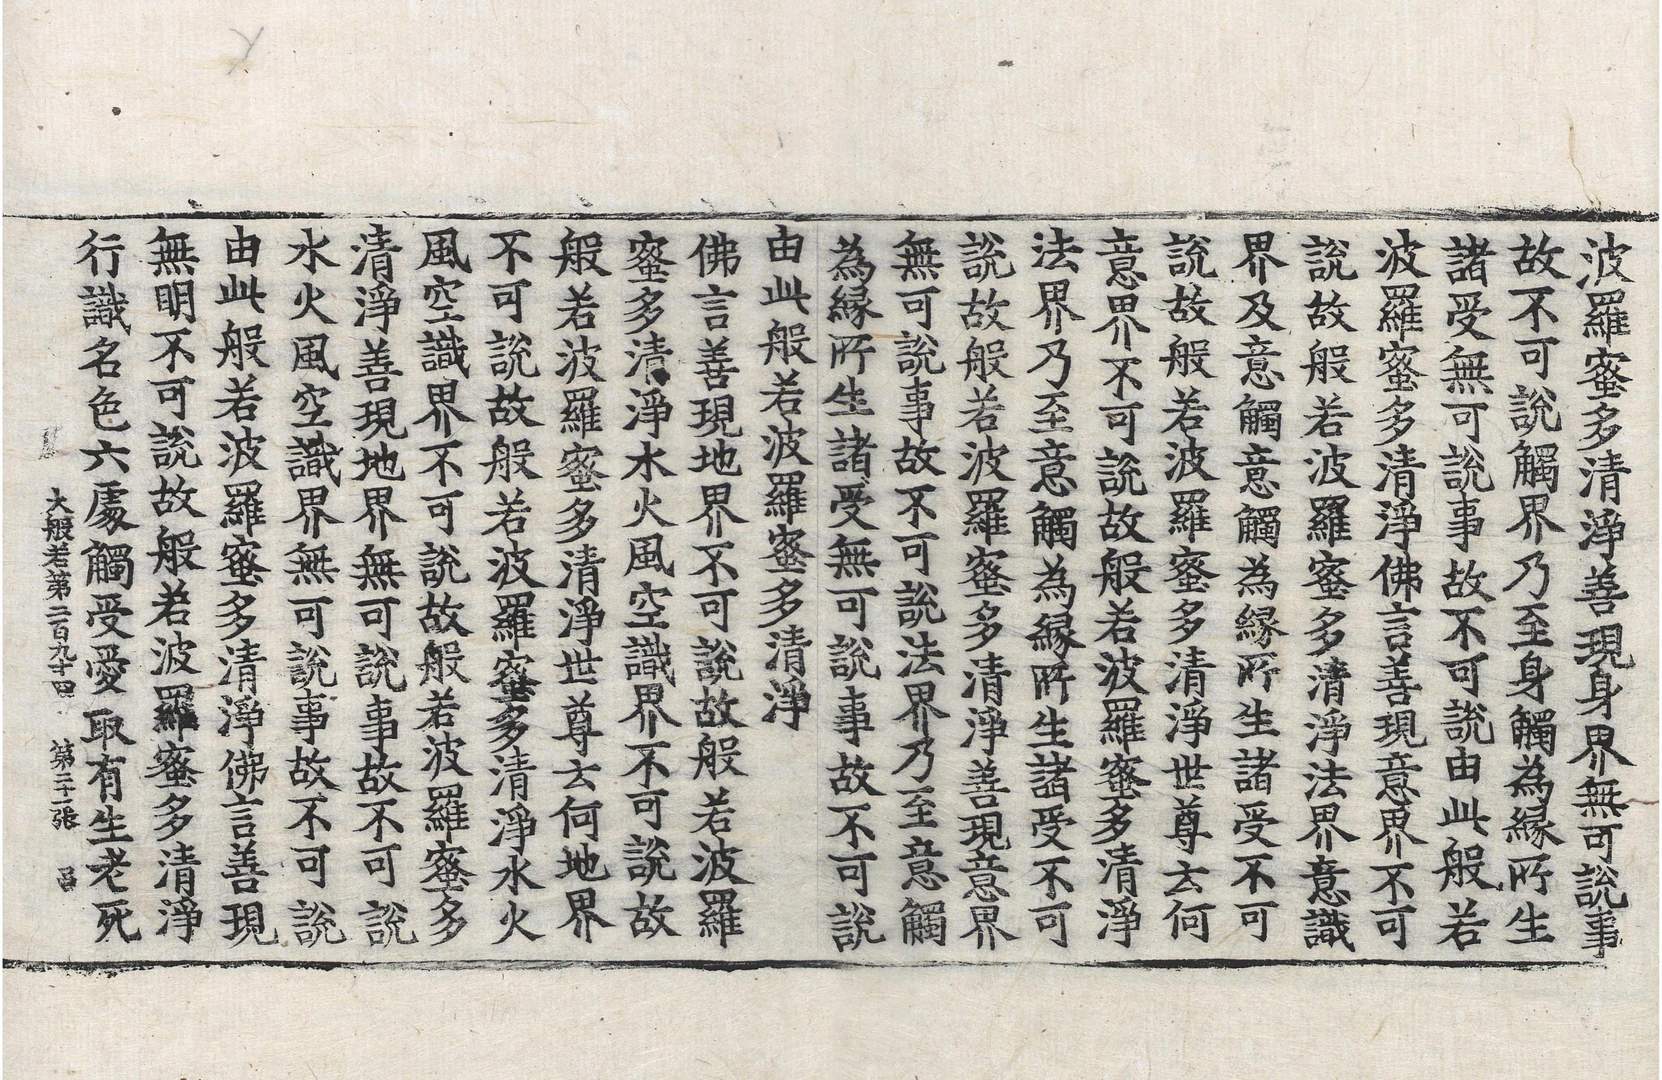 波羅蜜多清淨善現身界無可說事
故不可說觸界乃至身觸為緣所生
諸受無可說事故不可說由此般若
波羅蜜多清淨佛言善現意界不可
說故般若波羅蜜多清淨法界意識
界及意觸意觸為緣所生諸受不可
說故般若波羅蜜多清淨世尊云何
意界不可說故般若波羅蜜多清淨
法界乃至意觸為緣所生諸受不可
說故般若波羅蜜多清淨善現意界
無可說事故不可說法界乃至意觸
為緣所生諸受無可說事故不可說
由此般若波羅蜜多清淨
佛言善現地界不可說故般若波羅
蜜多清淨水火風空識界不可說故
般若波羅蜜多清淨世尊云何地界
不可說故般若波羅蜜多清淨水火
風空識界不可說故般若波羅蜜多
清淨善現地界無可說事故不可說
水火風空識界無可說事故不可說
由此般若波羅蜜多清淨佛言善現
無明不可說故般若波羅蜜多清淨
行識名色六處觸受愛取有生老死
大般若第二百九十四 第二十一張 呂